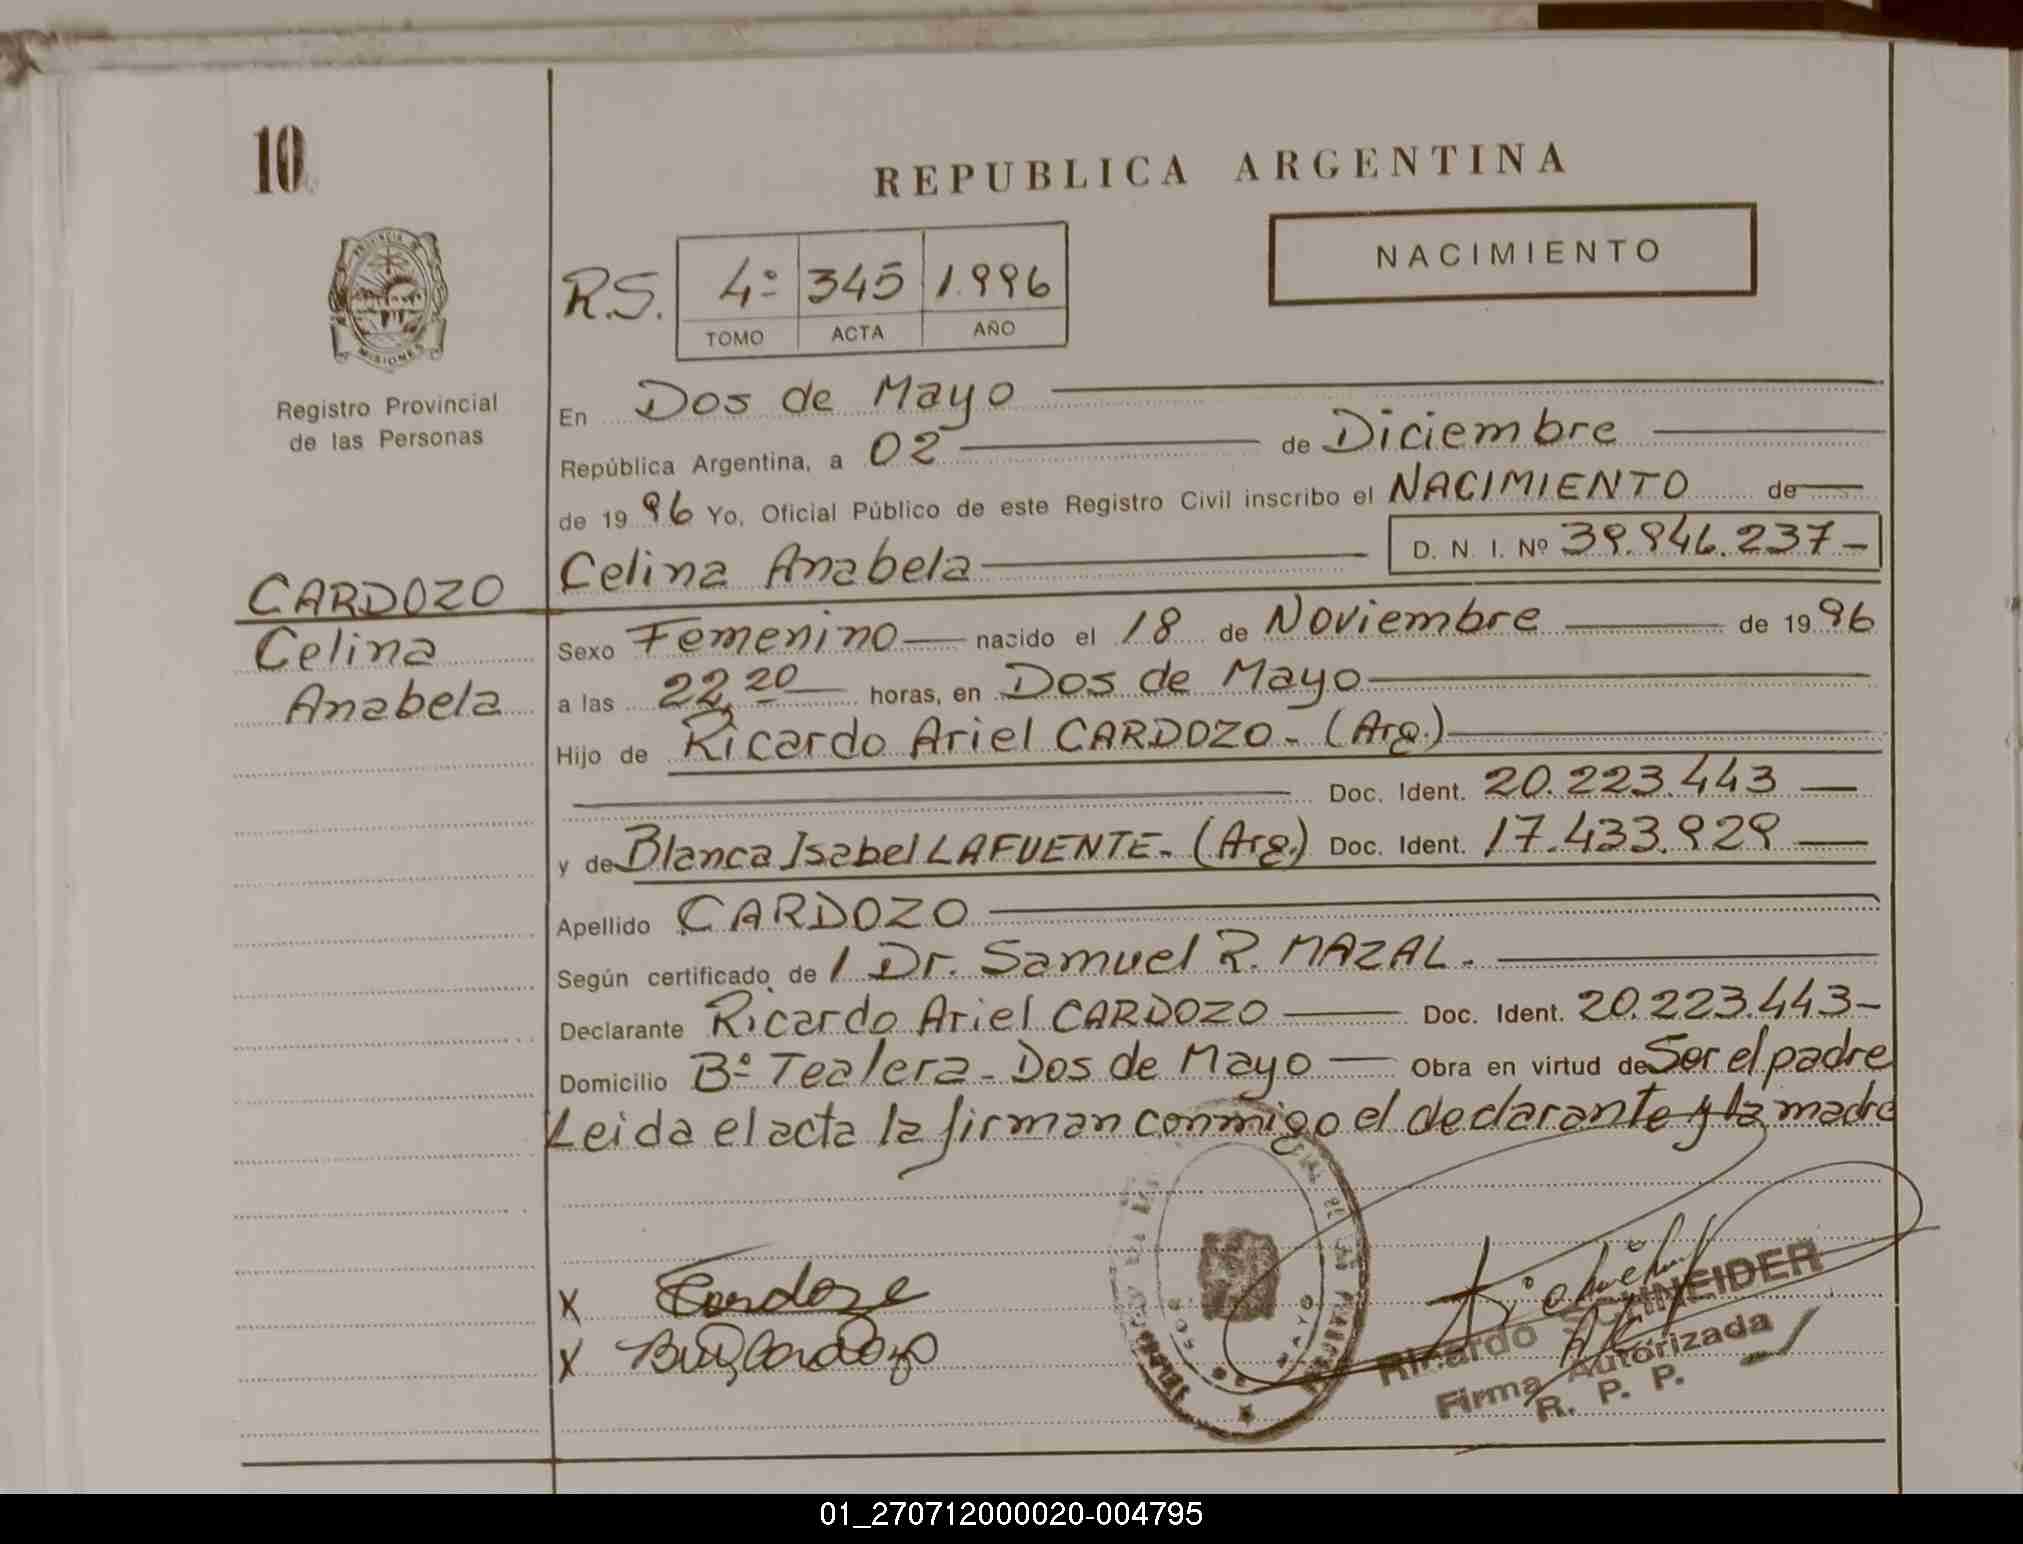 10
REPUBLICA ARGENTINA
NACIMIENTO
R.S. 4º 345 1.996
TOMO ACTA AÑO
PROVINCIA DE MISIONES
Registro Provincial
de las Personas
En Dos de Mayo
República Argentina, a 02 de Diciembre
de 1996 Yo, Oficial Público de este Registro Civil inscribo el NACIMIENTO de
Celina Anabela D. N. I. Nº 39.946.237-
CARDOZO
Celina
Anabela
Sexo Femenino nacido el 18 de Noviembre de 1996
a las 22,20 horas, en Dos de Mayo
Hijo de Ricardo Ariel CARDOZO - (Arg.)
Doc. Ident. 20.223.443
y de Blanca Isabel LAFUENTE - (Arg.) Doc. Ident. 17.433.929
Apellido CARDOZO
Según certificado de / Dr. Samuel R. MAZAL.
Declarante Ricardo Ariel CARDOZO Doc. Ident. 20.223.443-
Domicilio Bº Tealera - Dos de Mayo Obra en virtud de Ser el padre
Leida el acta la firman conmigo el declarante y la madre
X Cardozo
X
Ricardo SCHNEIDER
Firma Autorizada
R. P. P.
01_270712000020-004795